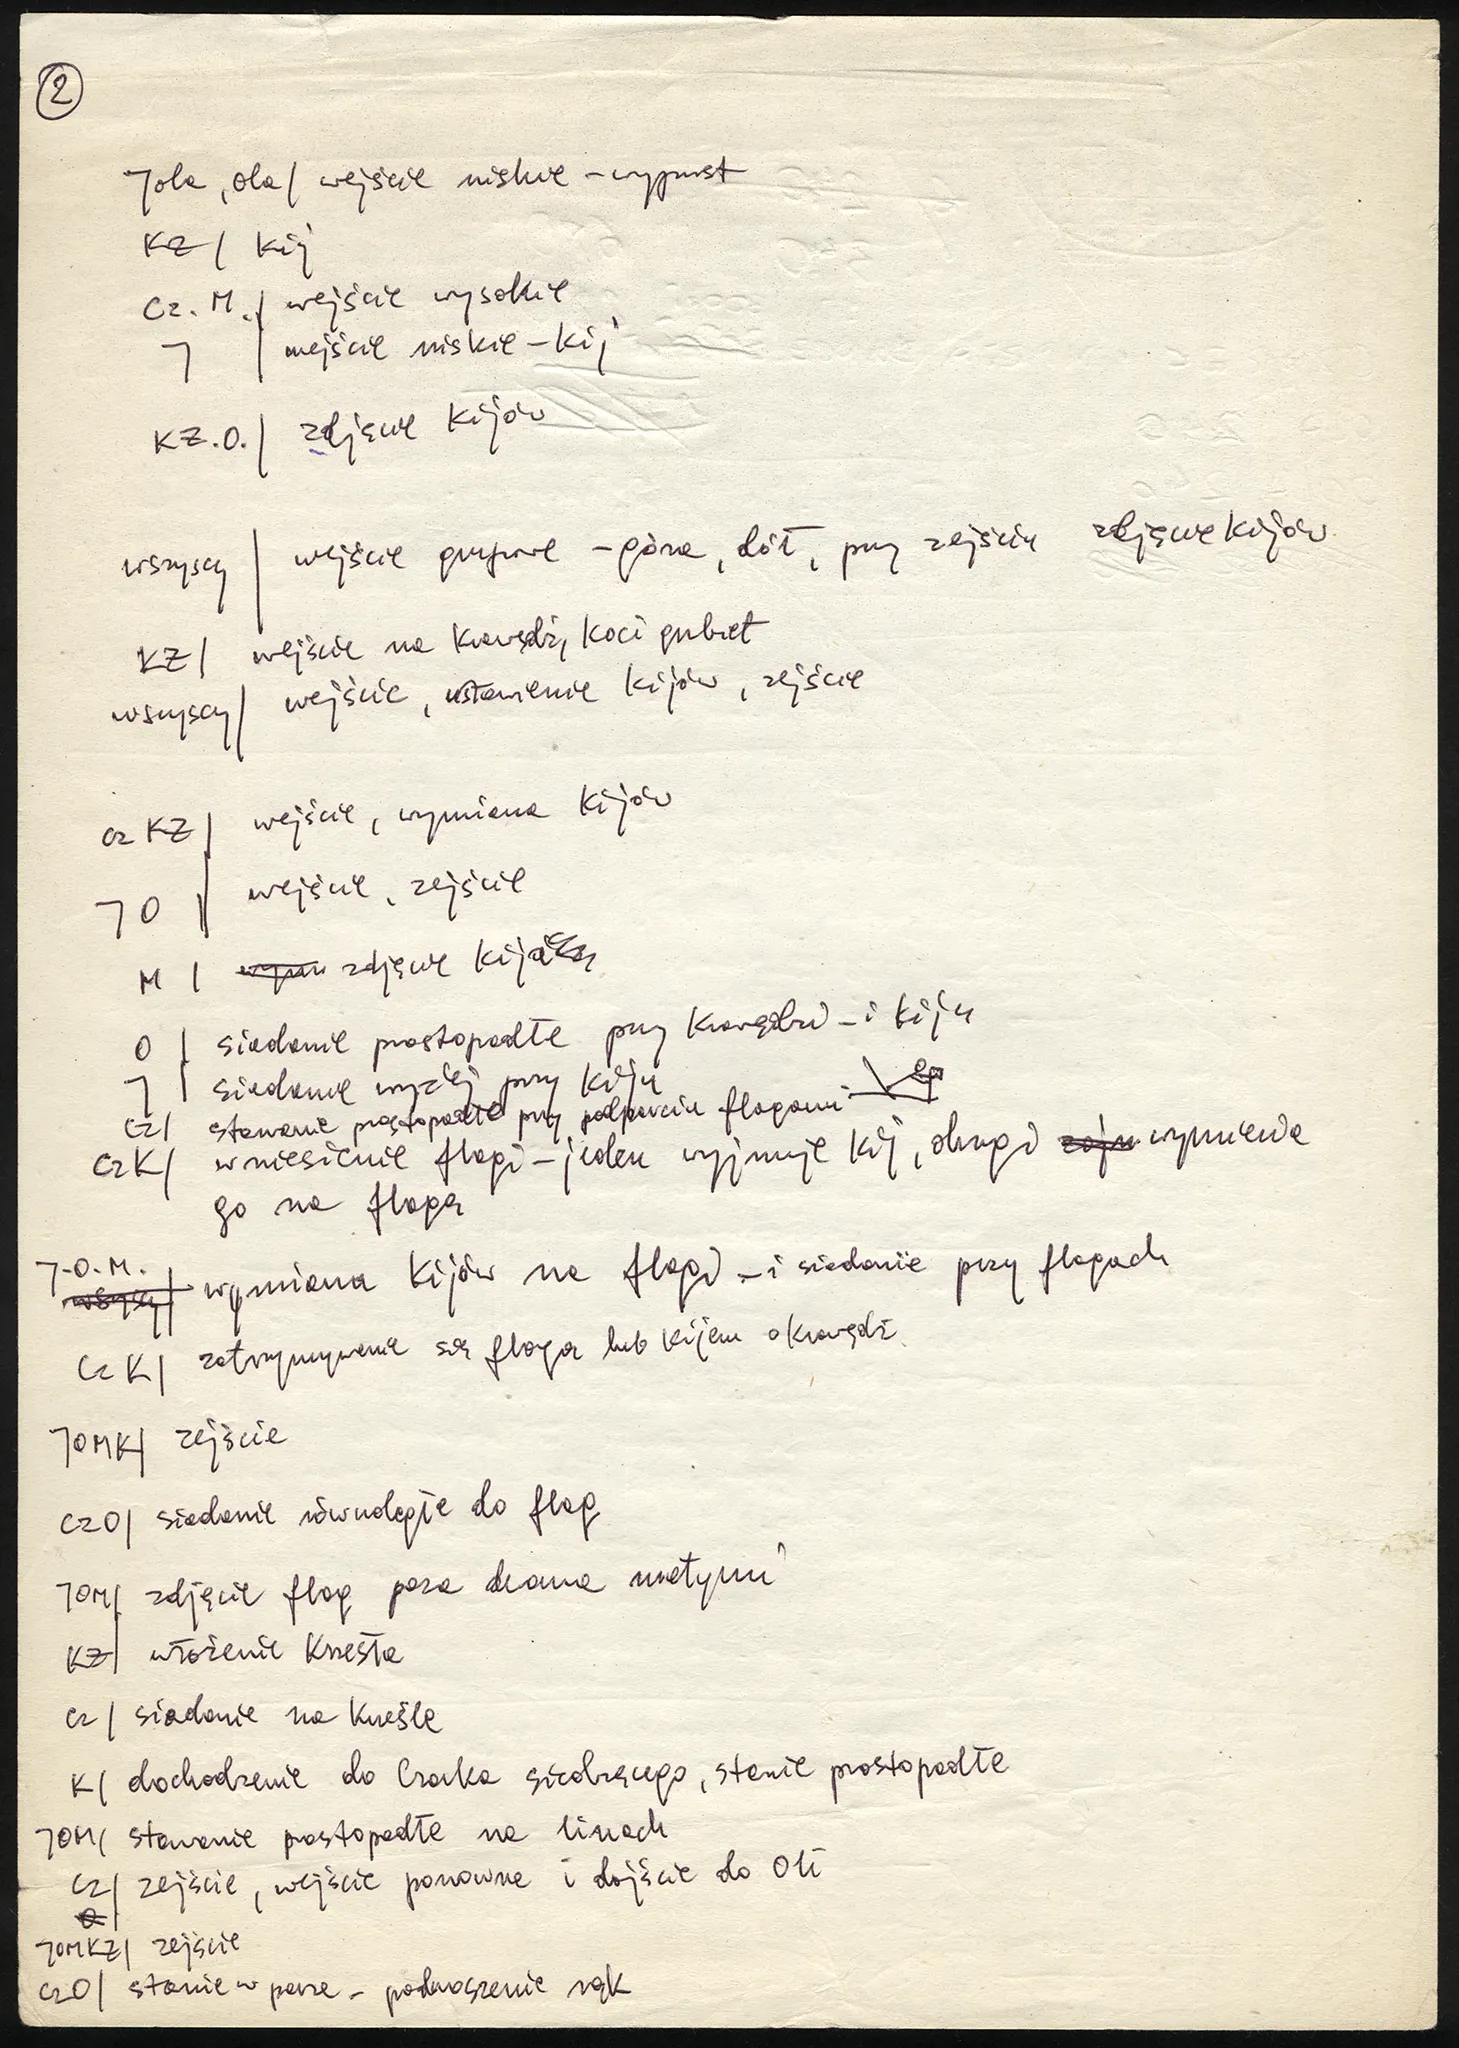 2
Jola, Ola / wejście niskie – wyprost
KZ / kij
Cz. M. / wejście wysokie
J | wejście niskie – kij
KZ. O. / zdjęcie kijów
wszyscy | wejście grupowe – góra, dół, przy zejściu zdjęcie kijów
KZ / wejście na krawędź, koci grzbiet
wszyscy / wejście, ustawienie kijów, zejście
Cz KZ | wejście, wymiana kijów
J O | wejście, zejście
M | zdjęcie kija
O | siadanie prostopadłe przy krawędzi – i kiju
J | siadanie wyżej przy kiju
Cz / stawanie prostopadłe przy podparciu flagami
Cz K / wniesienie flagi – jeden wyjmuje kij, drugi wymienia
go na flagę
J. O. M. wymiana kijów na flagi – i siadanie przy flagach
Cz K / zatrzymywanie się flagą lub kijem o krawędź
JOMK / zejście
Cz O / siadanie równoległe do flag
JOM / zdjęcie flag poza dwoma małymi
KZ | włożenie krzesła
Cz / siadanie na krześle
K / dochodzenie do Czarka siedzącego, stanie prostopadłe
JOM / stawanie prostopadłe na linach
Cz / zejście, wejście ponowne i dojście do Oli
JOMKZ / zejście
Cz O / stanie w parze – podnoszenie rąk